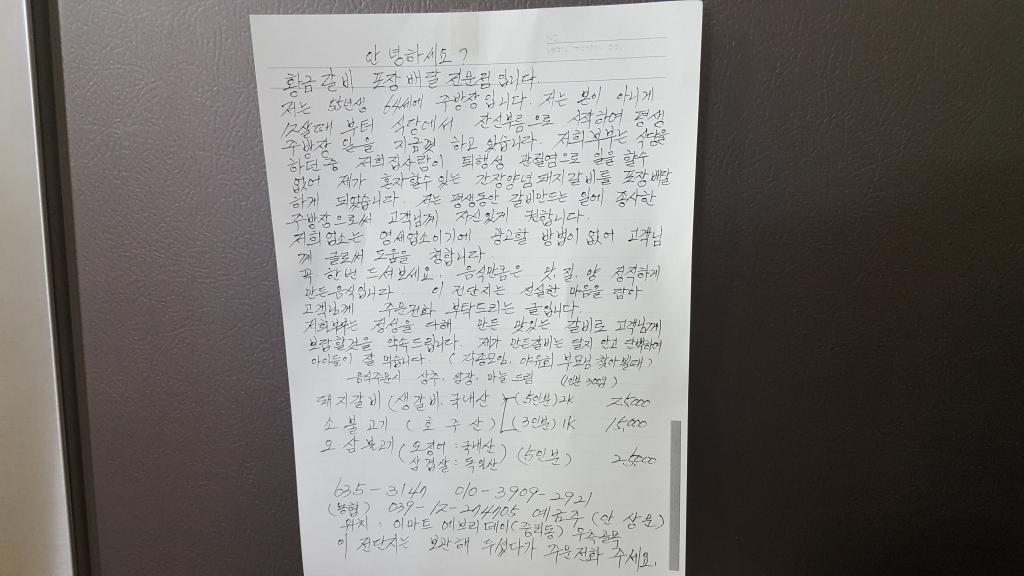 안녕하세요?
황금갈비 포장배달 전문점입니다.
저는 55년생 64세에 주방장입니다. 저는 본이 아니게
12살때 부터 식당에서 잔신부름으로 시작하여 평생
주방장 일을 지금껏 하고 있습니다. 저희부부는 식당을
하던중 저희집사람이 퇴행성 관절염으로 일을 할수
없어 제가 혼자할수 있는 간장양념돼지갈비를 포장배달
하게 되었습니다. 저는 평생동안 갈비만드는 일에 종사한
주방장으로써 고객님께 자신있게 권합니다.
저희업소는 영세업소이기에 광고할 방법이 없어 고객님
께 글로써 도움을 청합니다
꼭 한번 드셔보세요. 음식만큼은 맛,질,양 정직하게
만든음식입니다 이 전단지는 진실한 마음을 담아
고객님께 주문전화 부탁드리는 글입니다.
저희부부는 정성을 다해 만든 맛있는 갈비로 고객님께
보답할것을 약속드립니다. 제가 만든갈비는 달지 안고 담백하여
아이들이 잘 먹습니다 (각종모임, 야유회 부모님 찾아뵐때)
음식주문시 상추, 쌈장, 마늘 드림 (1인분 300g)
돼지갈비 (생갈비, 국내산) (5인분)2K 25,000
소불고기 (호주산) (3인분)1K 15,000
오삼불고기 (오징어:국내산) (5인분) 25,000
삼겹살:독일산
635-3147 010-3909-2921
(농협) 039-12-274705 예금주 (안상운)
위치: 이마트 에브리데이(중리동) 우측골목
이 전단지는 보관해 두셨다가 주문전화 주세요.